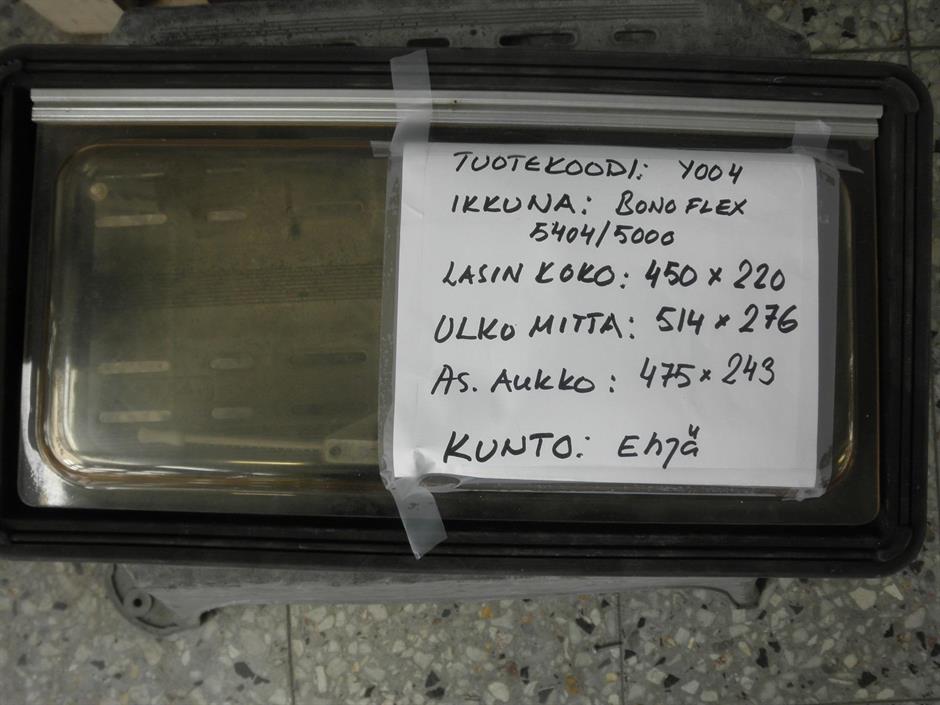 TUOTEKOODI: Y004
IKKUNA: BONOFLEX
5404/5000
LASIN KOKO: 450 x 220
ULKO MITTA: 514 x 276
AS. AUKKO: 475 x 243
KUNTO: Ehjä